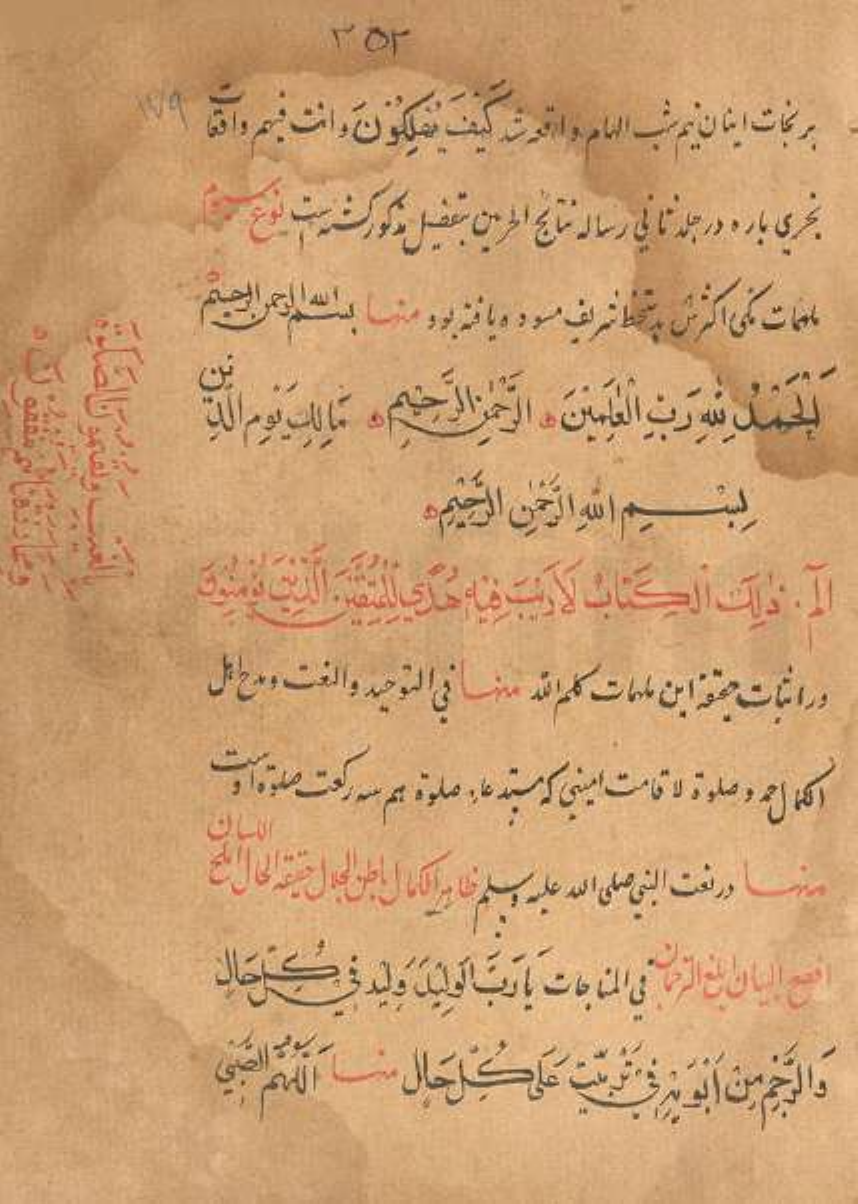 ٣٥٢
١٧٩
بر نجات اینان نیم شب الهام واقعه شد كَيْفَ يُهْلِكُوْنَ وانت فيهم واقعات
بحري باره در جلد ثاني رساله نتائج الحرمین بتفصیل مذکور گشته است نوع سیوم
ملهمات یکی اکثرش بدستخط شریف مسوده یافته بود منها بسم الله الرحمن الرحيم
اَلْحَمْدُ لِلّٰهِ رَبِّ الْعٰلَمِيْنَ الرَّحْمٰنِ الرَّحِيْمِ مَالِكِ يَوْمِ الدِّيْنِ
بِسْــمِ اللّٰهِ الرَّحْمٰنِ الرَّحِيْمِ
الٓمٓ ذٰلِكَ الْكِتَابُ لَارَيْبَ فِيْهِ هُدًي لِلْمُتَّقِيْنَ الَّذِيْنَ يُؤْمِنُوْنَ
بالغيب ويقيمون الصلوة
ومما رزقناهم ينفقون
ور اثبات حقیقة این ملهمات کلم الله منها في التوحيد والنعت ومدح اهل
الکمال حمد و صلوة لا قامت امینی که مبتدعا، صلوة هم سه رکعت صلوة اوست
منها در نعت النبي صلى الله عليه وسلم ظاهر الكمال باطن الجلال حقيقة الحال املح اللسان
افصح البيان ابلغ الترجمان في المناجات يَا رَبَّ الْوَلِيْدَ وَلِيْد فِيْ كُلِّ حَال
وَالرَّحْمِ مِنْ اَبَوَيْهِ فِيْ تَرْبِيَت عَلٰى كُلِّ حَال منها اَللّٰهُمَّ الصَّبِيّ